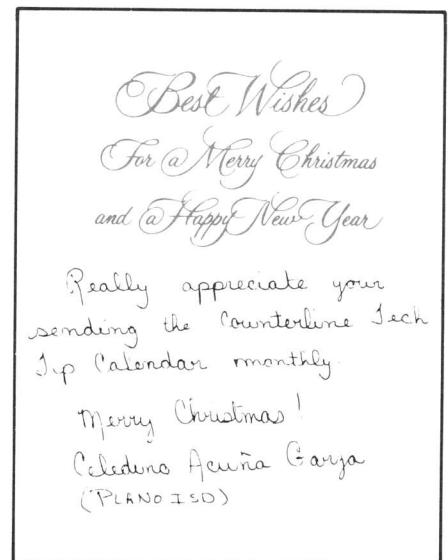 Best Wishes
For a Merry Christmas
and a Happy New Year
Really appreciate your
sending the Counterline Tech
Tip Calendar monthly.
Merry Christmas!
Celedino Acuña Garza
(PLANO ISD)